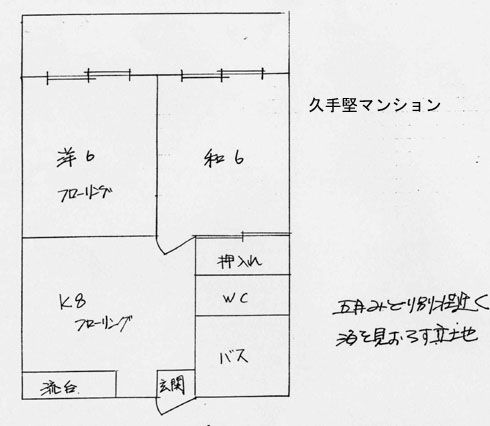 久手堅マンション
洋6
フローリング
和6
押入れ
K8
フローリング
WC
バス
流台
玄関
近く
海を見おろす立地